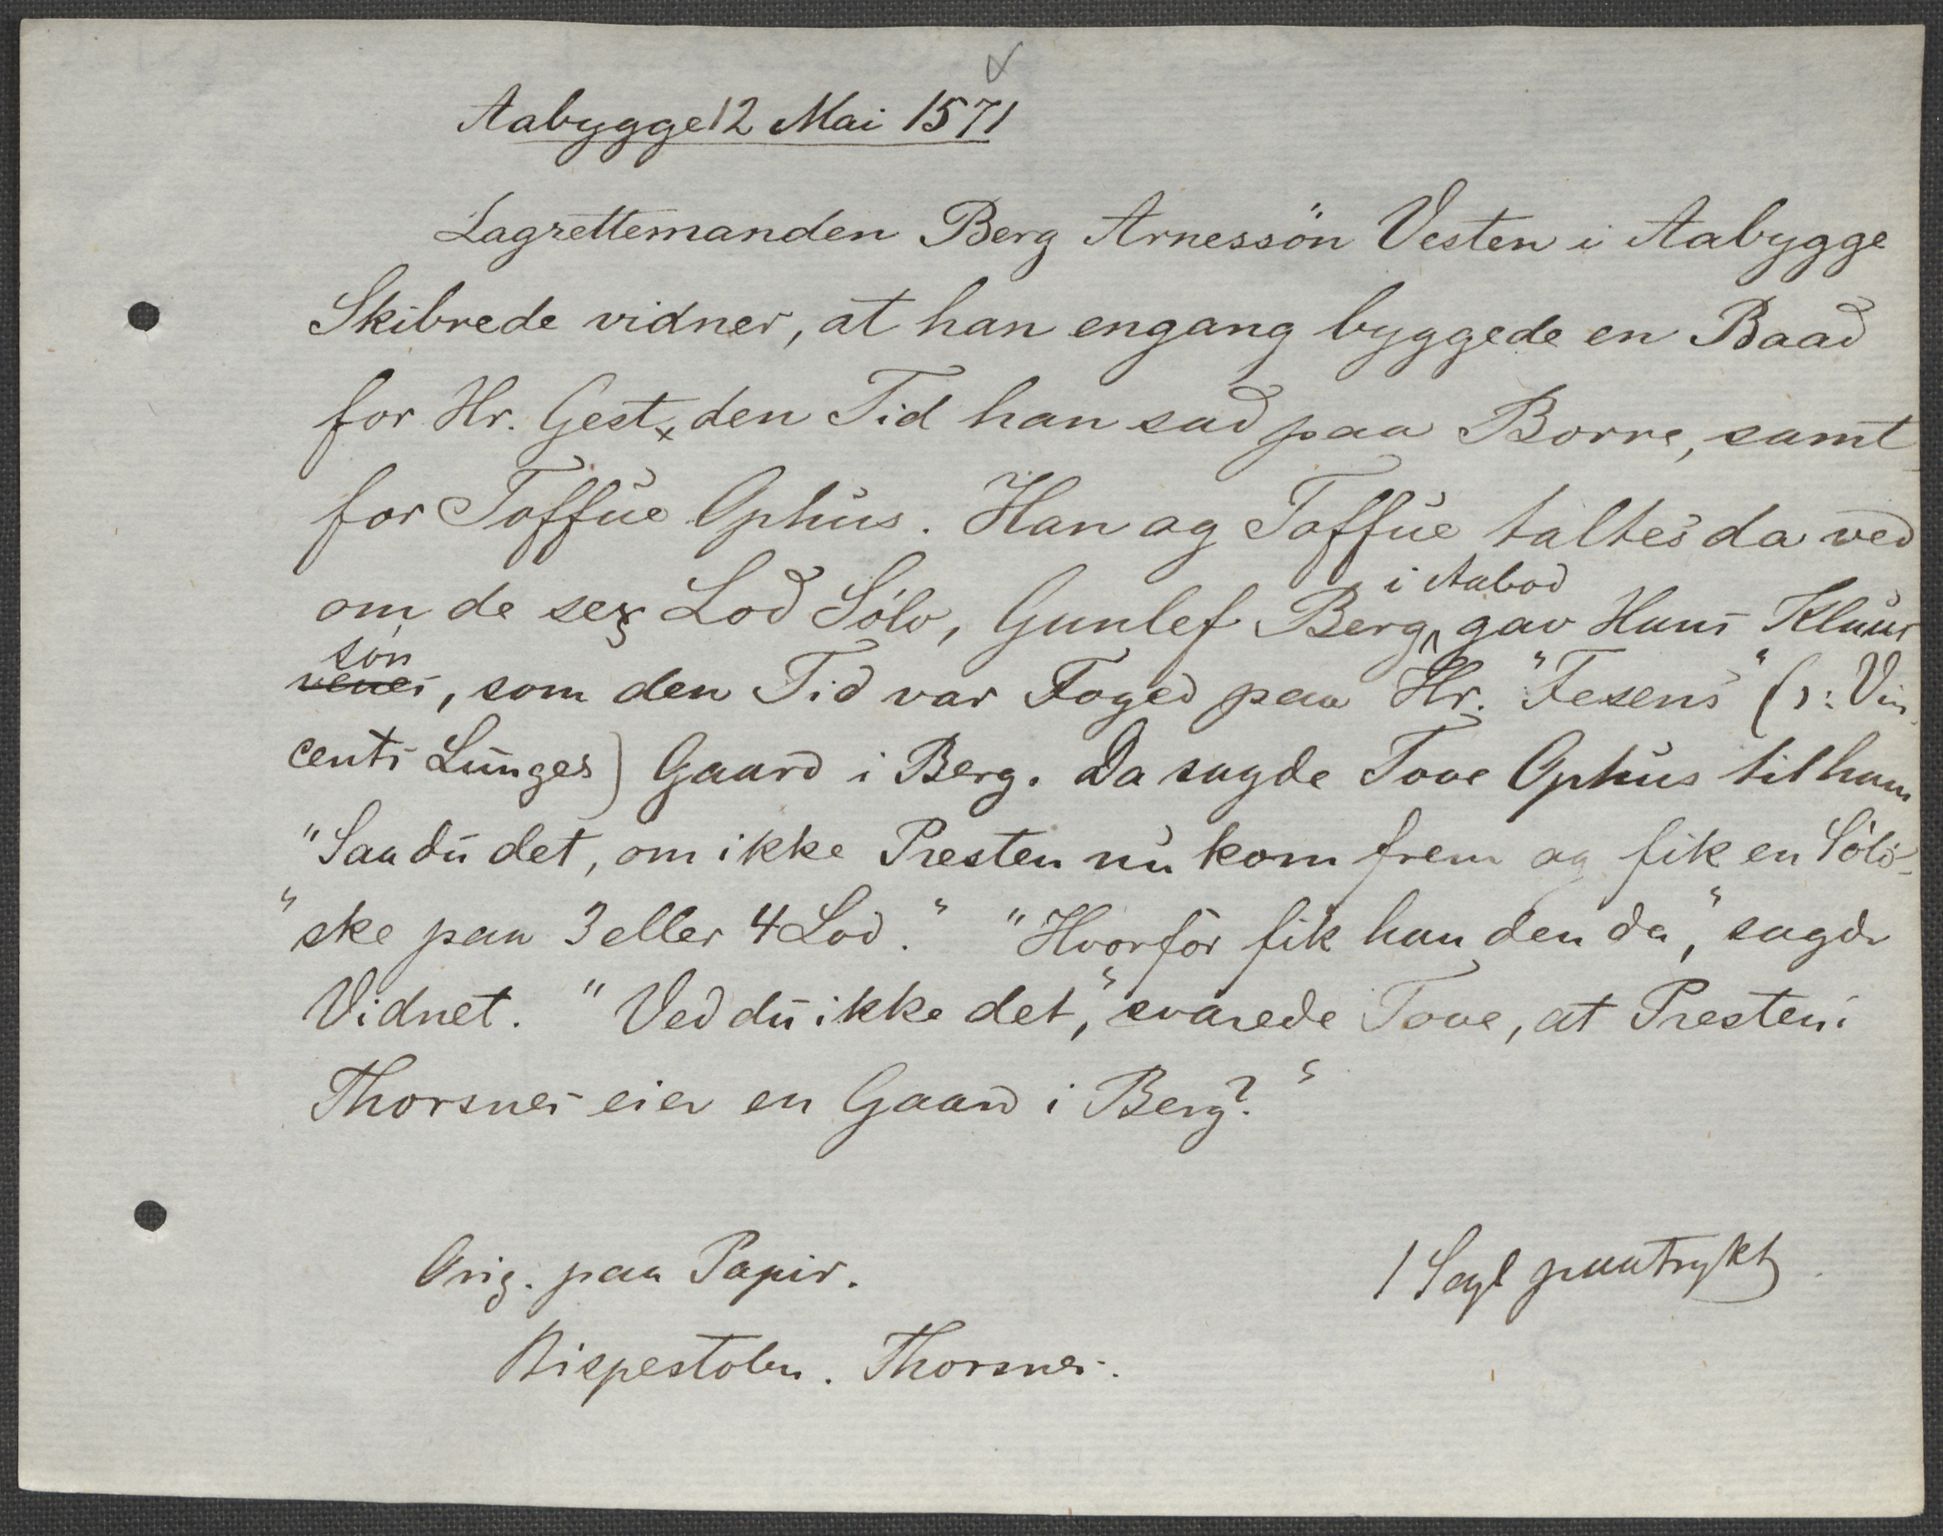 Aabygge 12 Mai 1571
Lagrettemanden Berg Arnessön Vesten i Aabygge
Skibrede vidner, at han engang byggede en Baad
for Hr. Gest, den Tid han sad paa Borre, samt
for Toffue Ophus. Han og Toffue taltes da ved
om de sex Lod Sölv, Gunlef Berg i Aabod gav Hans Klaus
sön, som den Tid var Foged paa Hr. "Fesens" (ɔ: Vin
cents Lunges) Gaard i Berg. Da sagde Tove Ophus til ham
"Saa du det, om ikke Presten nu kom frem og fik en Sölv-
"ske paa 3 eller 4 Lod." "Hvorfor fik han den da," sagde
Vidnet. "Ved du ikke det," svarede Tove, at Presten i
Thorsnes eier en Gaard i Berg?"
Orig. paa Papir.
1 Segl paatrykt
Bispestolen. Thorsnes.